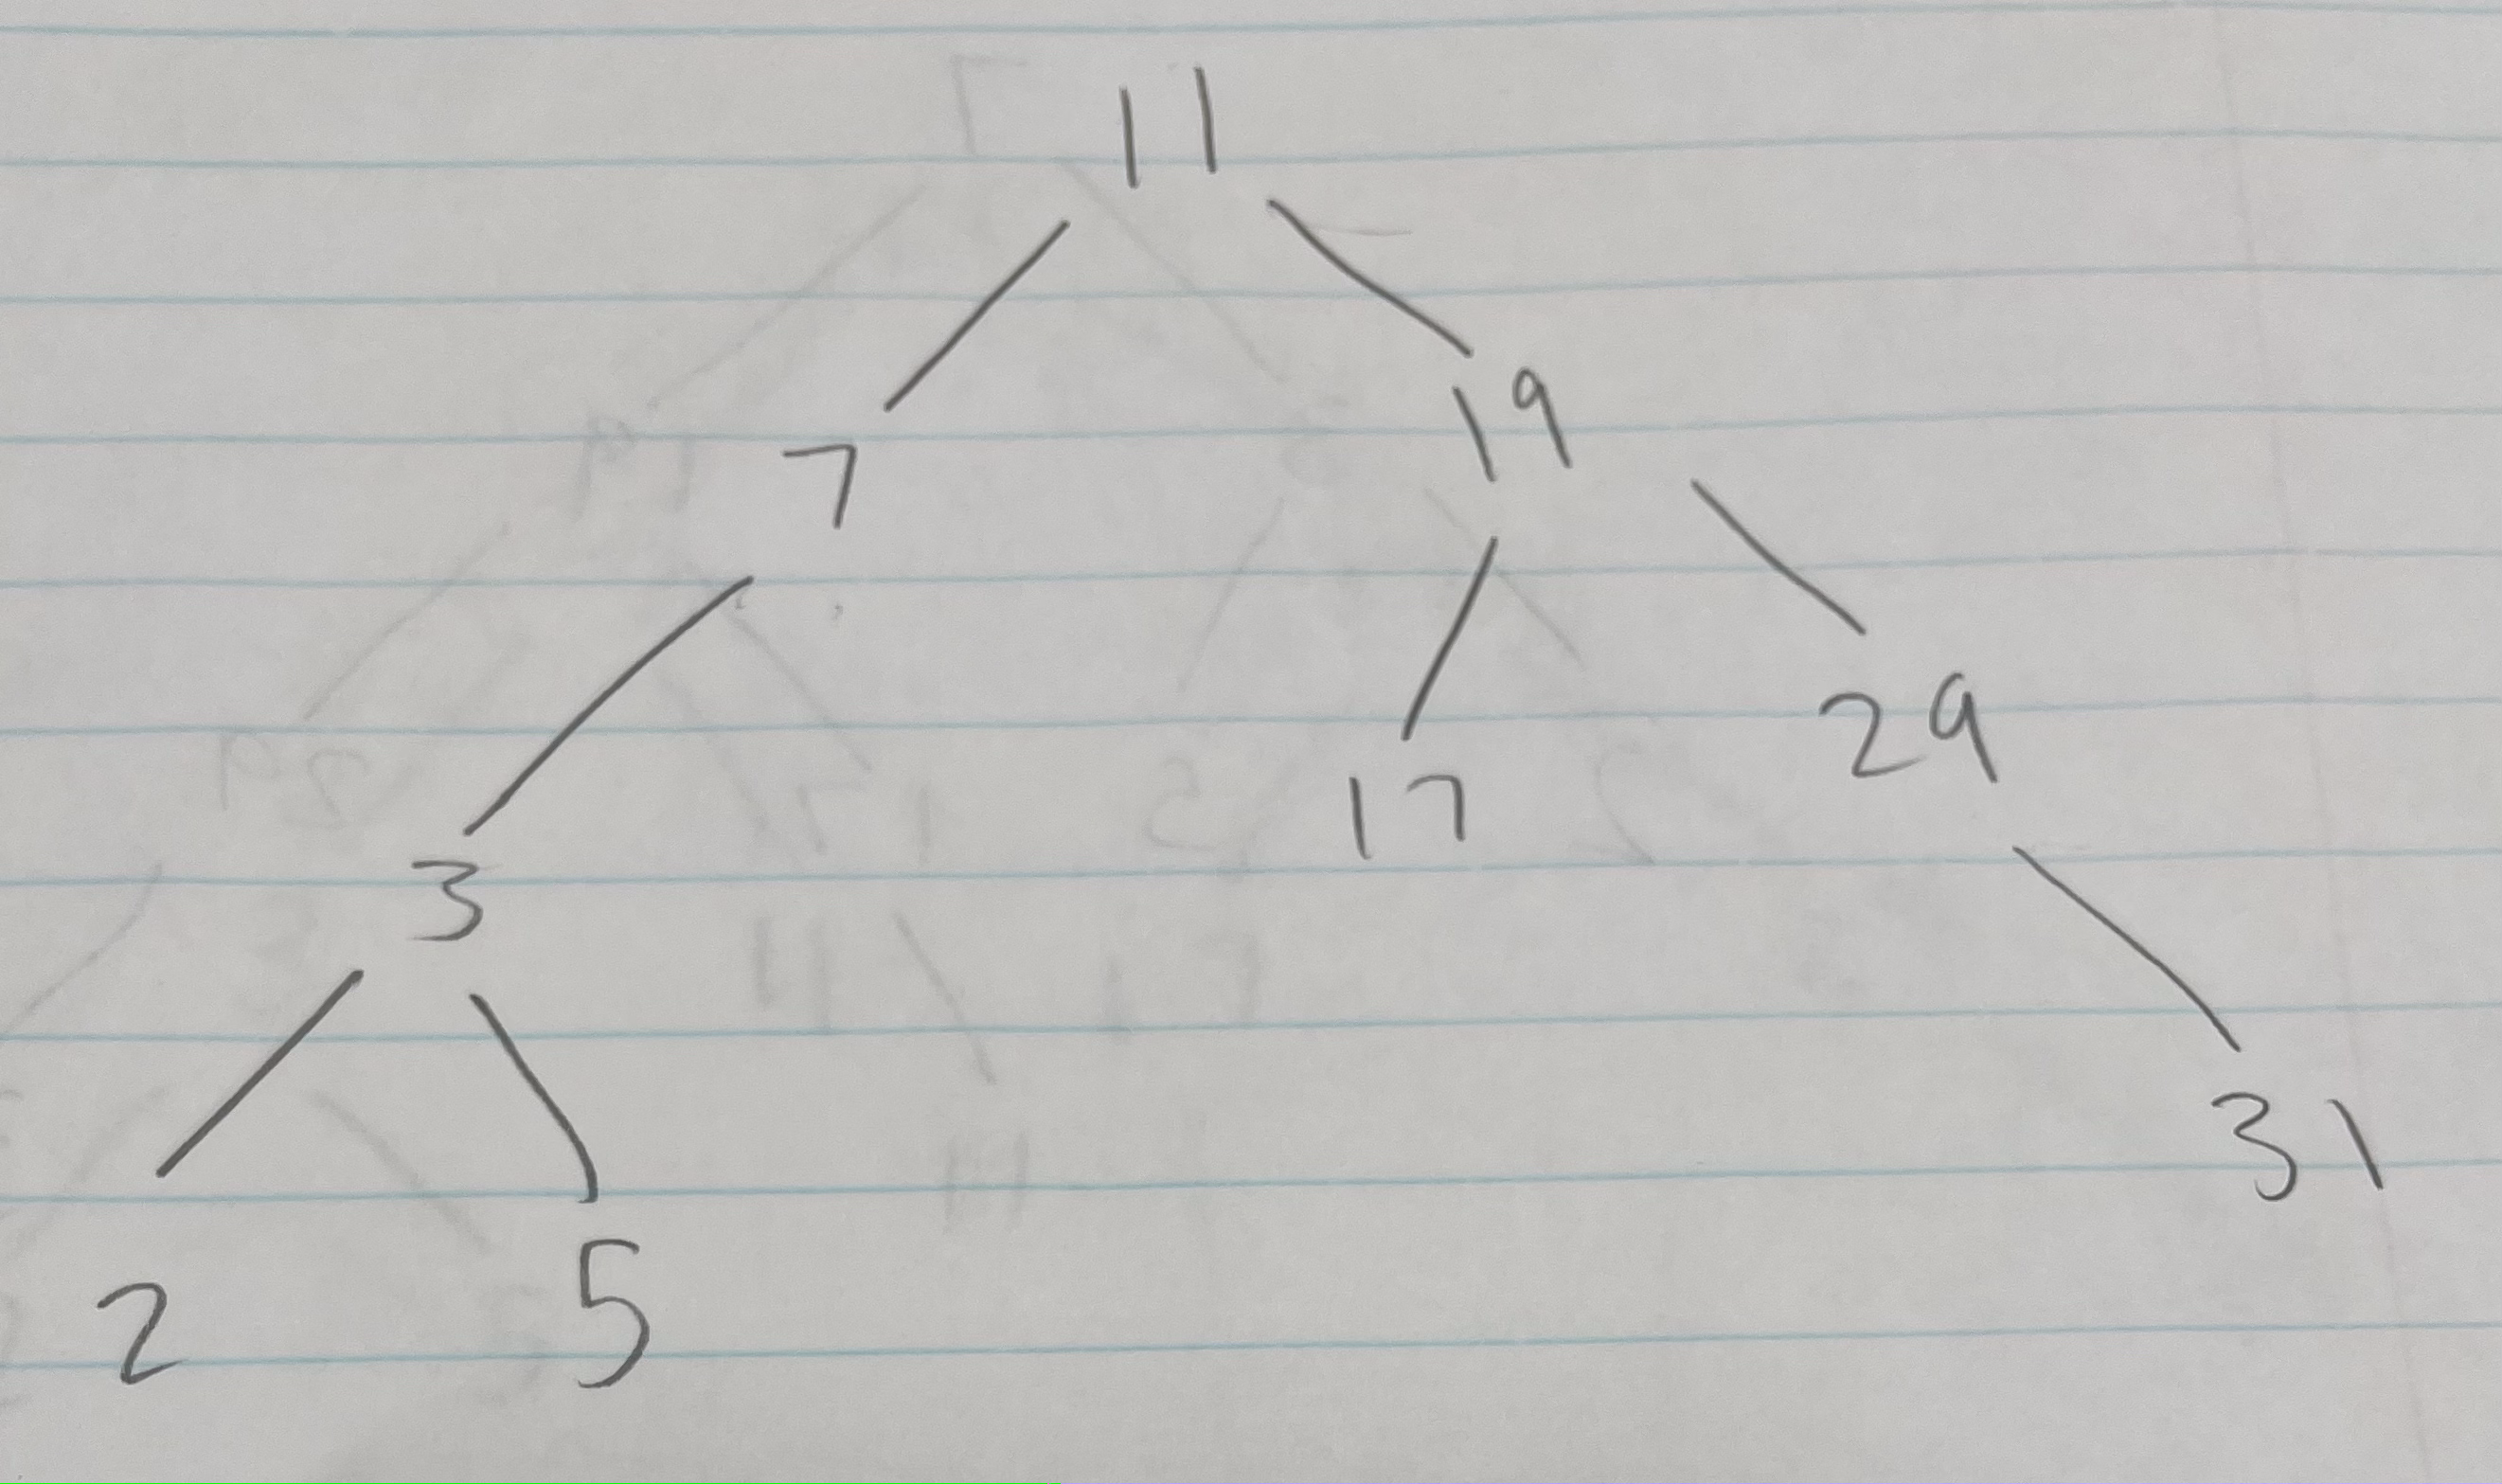 11
7 19
3 17 29
2 5 31